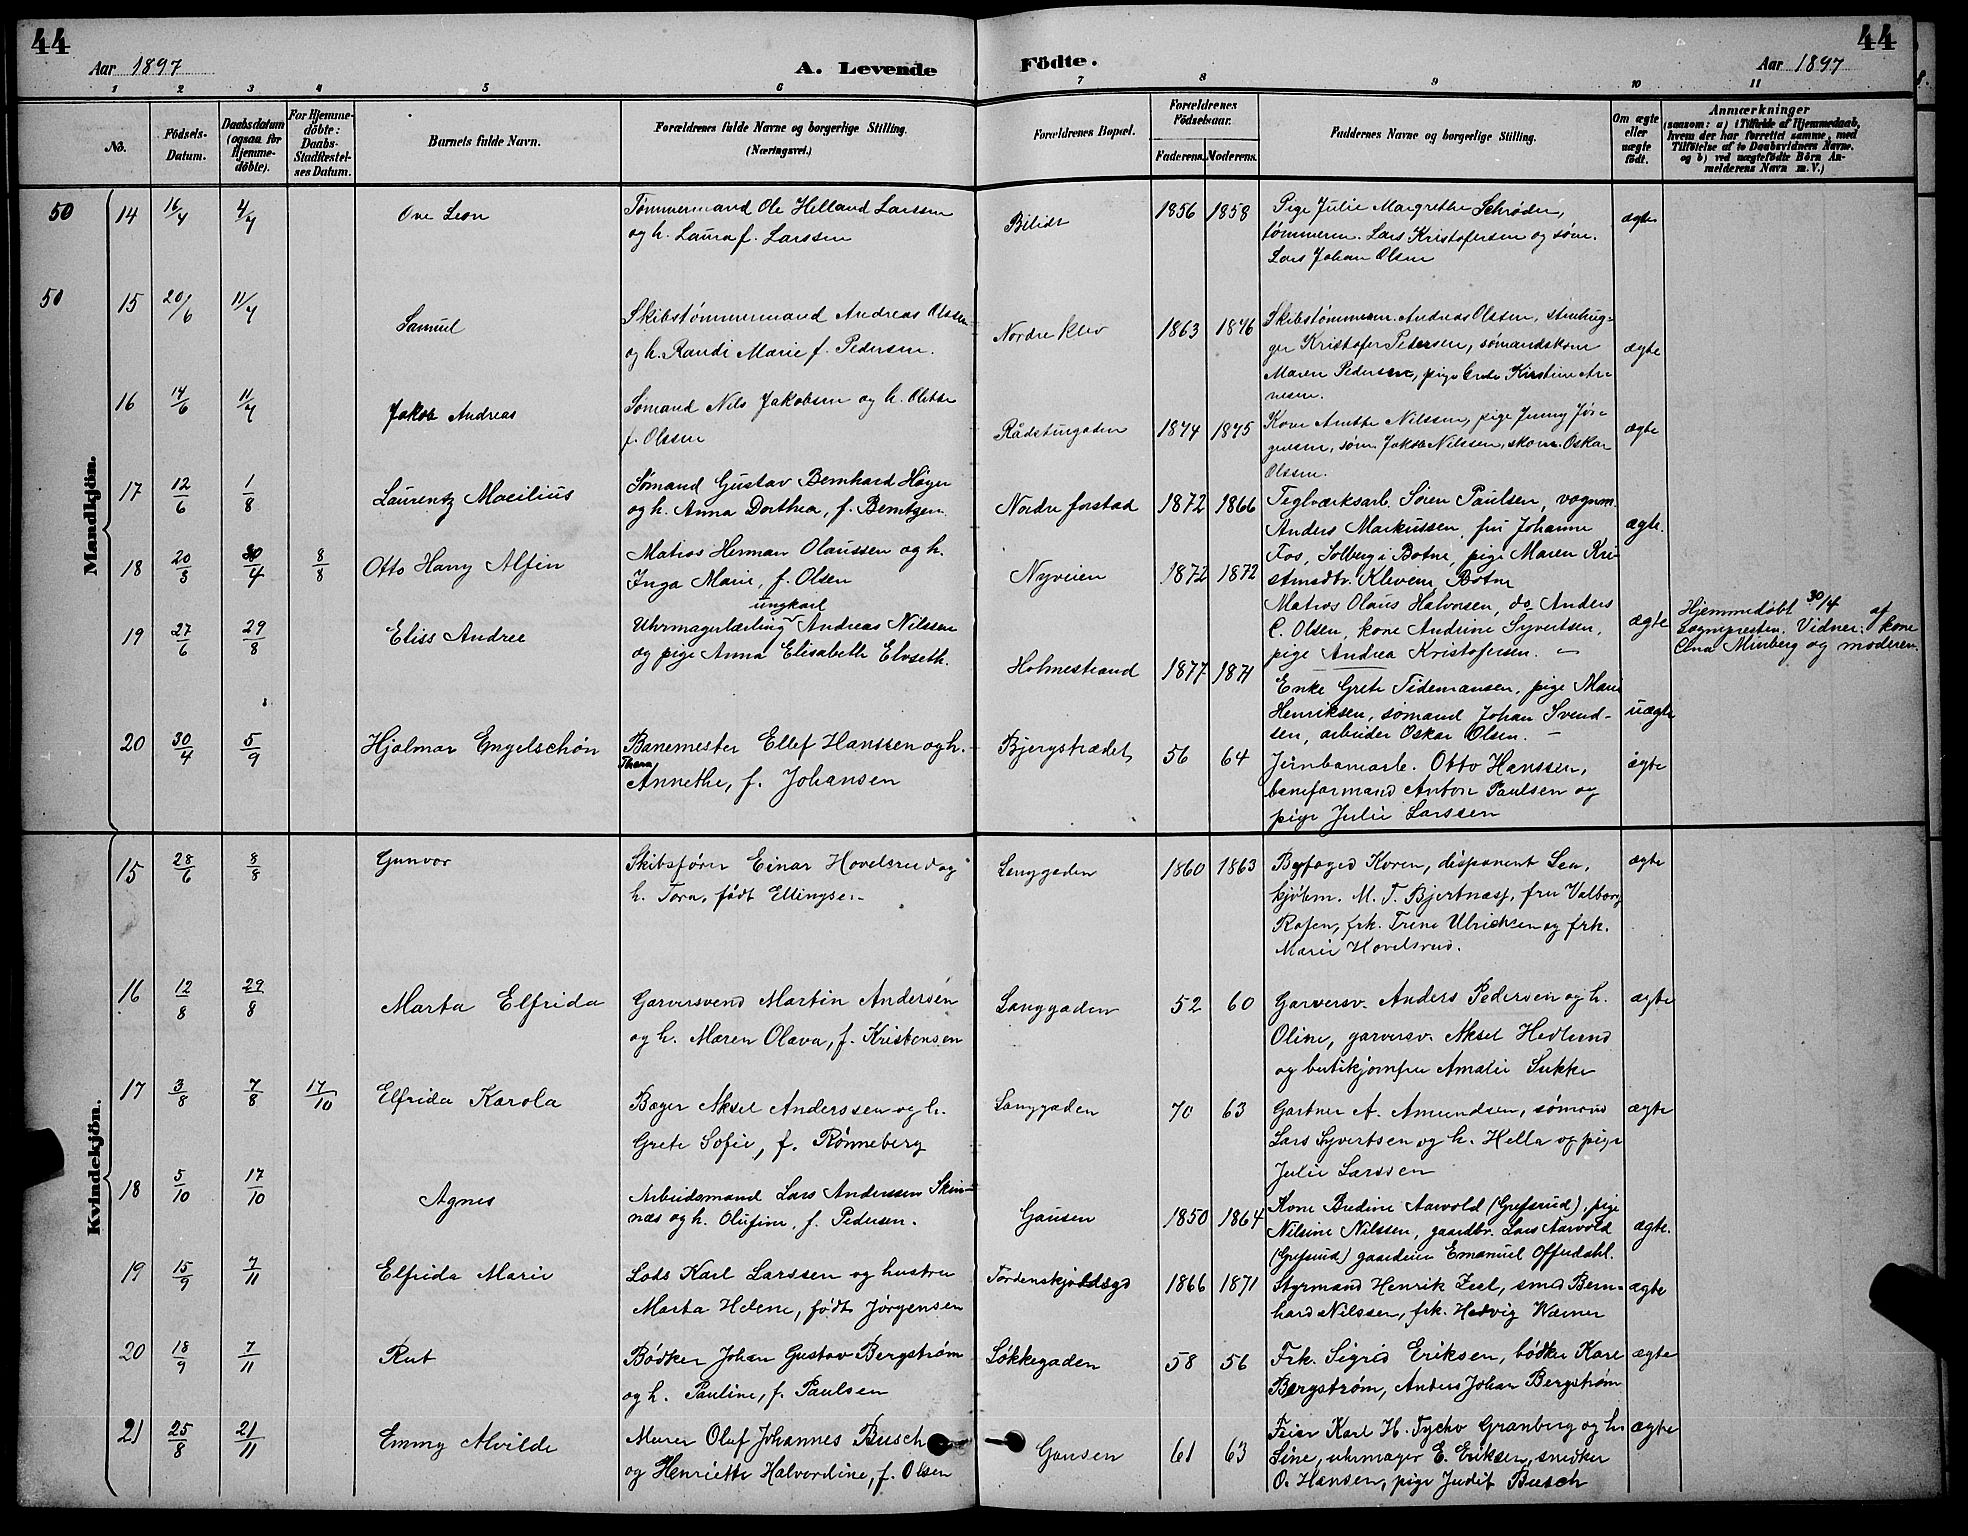 44
Aar 1897
A. Levende
Födte.
Aar 1897
44
1 2 3 4 5 6 7 8 9 10 11
No.
Födsels-
Datum.
Daabsdatum
(ogsaa for
Hjemme-
döbte).
For Hjemme-
döbte:
Daabs-
Stadfæstel-
ses Datum.
Barnets fulde Navn.
Forældrenes fulde Navne og borgerlige Stilling.
(Næringsvei.)
Forældrenes Bopæl.
Forældrenes
Födselsaar.
Faderens.
Moderens.
Faddernes Navne og borgerlige Stilling.
Om ægte
eller
uægte
født.
Anmærkninger
(saasom: a) i Tilfælde af Hjemmedaab,
hvem der har forrettet samme, med
Tilföielse af to Daabsvidners Navne.
og b) ved uægtefödte Börn An-
melderens Navn m. V.)
Mandkjön.
50 14 16/4 4/7 Ove Leon
Tømmermand Ole Helland Larssen
og h. Laura f. Larssen
Bilidt 1856 1858
Pige Julie Margrethe Schrøder,
tømmerm. Lars Kristofersen og søm.
Lars Johan Olsen
ægte
50 15 20/6 11/7 Samuel
Skibstømmermand Andreas Olssen
og h. Randi Marie f. Pedersen.
Nordre Klev 1863 1876
Skibstømmerm. Andreas Olsen, stenhug-
ger Kristofer Pedersen, sømandskone
Maren Pedersen, pige Grete Kirstine Ar-
nesen.
ægte
16 14/6 11/7 Jakob Andreas
Sømand Nils Jakobsen og h. Olette
f. Olssen
Rådstugaden 1874 1875
Kone Anette Nilssen, pige Jenny Jør-
gensen, søm. Jakob Nilssen, skom. Oskar
Olssen.
ægte
17 12/6 1/8 Laurentz Mocilius
Sømand Gustav Bernhard Høyer
og h. Anna Dorthea, f. Berntzen
Nordre forstad 1872 1866
Teglværksarb. Søren Paulsen, vognm.
Anders Markussen, fru Johanne
Fos, Solberg i Botne, pige Maren Kri-
stensdtr. Klevene, Botne
ægte.
18 20/3 30/4 8/8 Otto Harry Alfin
Matros Herman Olaussen og h.
Inga Marie, f. Olsen
Nyveien 1872 1872
Matros Olaus Halvorsen, do Anders
C. Olsen, kone Andrine Syvertsen,
pige Andrea Kristofersen. —
ægte
Hjemmedøbt 30/4 af
sognepresten. Vidner: kone
Elna Minberg og moderen.
19 27/6 29/8 Eliss Andree
ungkarl
Uhrmagerlærling Andreas Nilssen
og pige Anna Elisabeth Elvseth.
Holmestrand 1877 1871
Enke Grete Tidemansen, pige Marie
Henriksen, sømand Johan Svend-
sen, arbeider Oskar Olsen. —
uægte
20 30/4 5/9 Hjalmar Engelschøn
Banemester Ellef Hanssen og h.
Thora
Annethe, f. Johansen
Bjergstrædet 56 64
Jernbanearb. Otto Hanssen,
baneformand Anton Paulsen og
pige Julie Larssen
ægte
Kvindekjön.
15 28/6 8/8 Gunvor
Skibsfører Einar Hovelsrud og
h. Tora, født Ellingsen
Langgaden 1860 1863
Byfoged Koren, disponent Lea,
kjøbm. M. T. Bjertnæs, fru Valborg
Rosen, frk. Trine Ulrichsen og frk.
Marie Hovelsrud.
ægte
16 12/8 29/8 Marta Elfrida
Garversvend Martin Andersen
og h. Maren Olava, f. Kristensen
Langgaden 52 60
Garversv. Anders Pedersen og h.
Oline, garversv. Aksel Hedlund
og butikjomfru Amalie Sukke
ægte
17 3/8 7/8 17/10 Elfrida Karola
Bager Aksel Anderssen og h.
Grete Sofie, f. Rønneberg
Langgaden 70 63
Gartner A. Amundsen, sømand
Lars Syvertsen og h. Hella og pige
Julie Larssen
ægte
18 5/10 17/10 Agnes
Arbeidsmand Lars Anderssen Skin-
næs og h. Olufine, f. Pedersen.
Gausen 1850 1864
Kone Andine Aarvold (Grefsrud), pige
Nilsine Nilssen, gaardbr. Lars Aarvold
(Grefsrud) gaardeier Emanuel Offerdahl.
ægte.
19 15/9 7/11 Elfrida Marie
Lods Karl Larssen og hustru
Marta Helene, født Jørgensen
Tordenskjoldsgd 1866 1871
Styrmand Henrik Zeel, smed Bern-
hard Nilssen, frk. Hedvig Wærner
ægte
20 18/9 7/11 Rut
Bødker Johan Gustav Bergstrøm
og h. Pauline, f. Paulsen
Løkkegaden 58 56
Frk. Sigrid Eriksen, bødker Karl
Bergstrøm, Anders Johan Bergstrøm
ægte
21 25/8 21/11 Emmy Alvilde
Murer Oluf Johannes Busch
og Henriette Halvordine, f. Olsen
Gausen 61 63
Feier Karl H. Tycho Granberg og h.
Line, uhrmager E. Eriksen, snedker
O. Hansen, pige Judit Busch
ægte